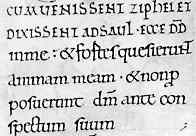 CUM VENISSENT ZIPHEI ET
DIXISSENT AD SAUL · ECCE DD
in me : & fortes quesierunt
animam meam · & non p
posuerunt dm ante con
spectum suum